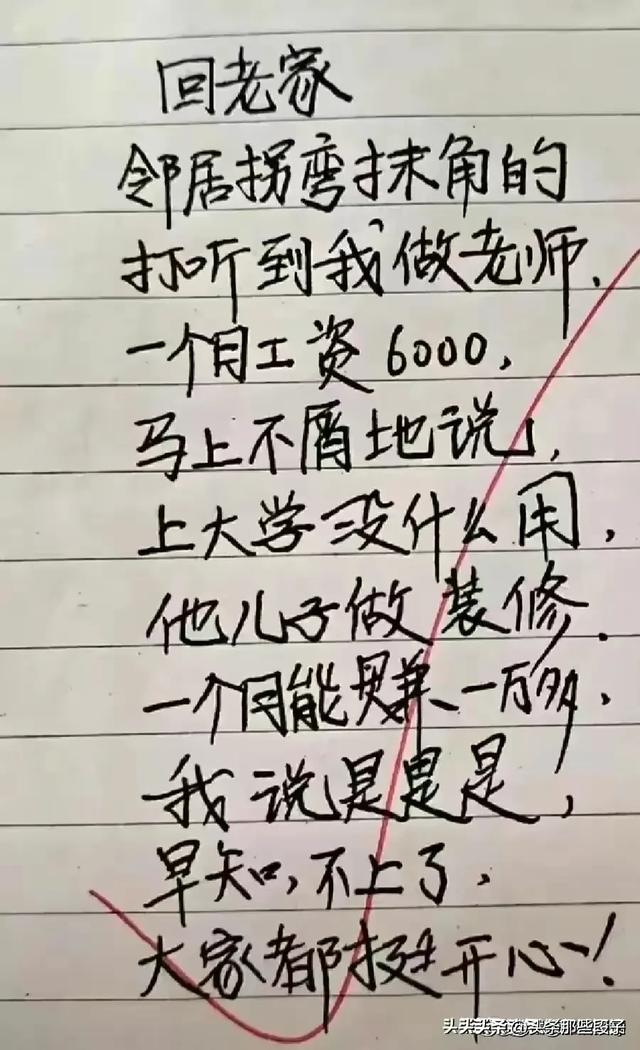 回老家
邻居拐弯抹角的
打听到我做老师.
一个月工资6000,
马上不屑地说,
上大学没什么用,
他儿子做装修.
一个月能赚一万多,
我说是是是,
早知,不上了.
大家都挺开心!